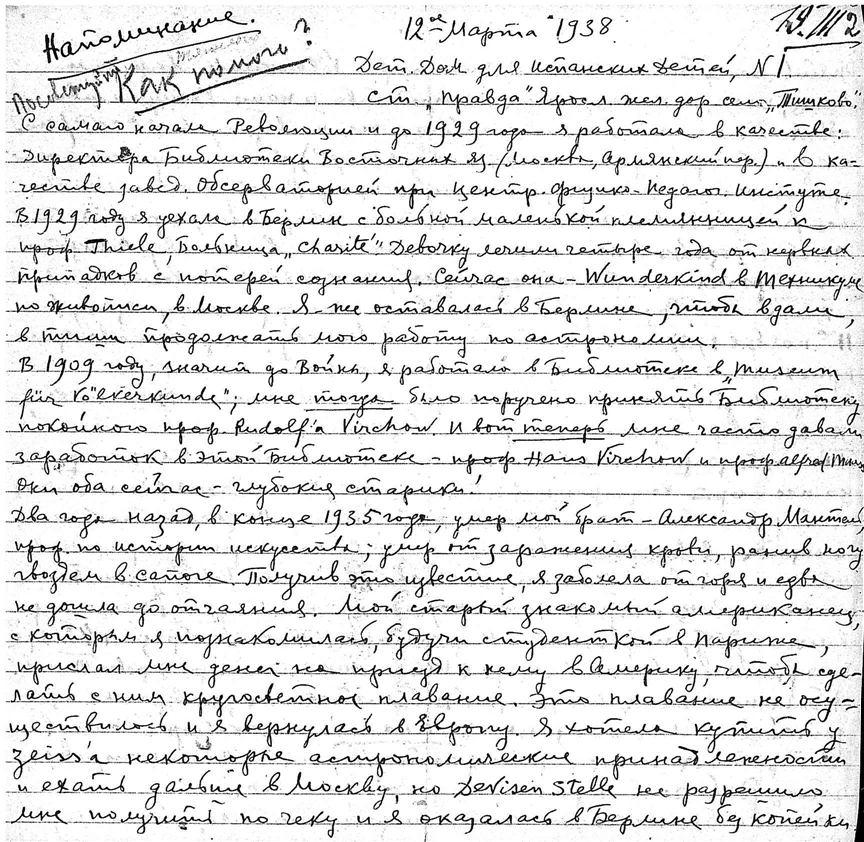 Напоминание.
Посоветуйте Как помочь?
12ое Марта 1938
19.III 2
Дет. Дом для испанских детей, N I.
ст. „Правда" Яросл. жел. дор. село „Тишково"
С самого начала Революции и до 1929 года я работала в качестве:
Директора Библиотеки Восточных яз. (Москва, Армянский пер.) и в ка-
честве завед. Обсерваторией при Центр. Физико-Педагог. Инстуте.
В 1929 году я уехала в Берлин с больной маленькой племянницей к
проф. Thiele, Больница „Charité". Девочку лечили четыре года от нервных
припадков с потерей сознания. Сейчас она - Wunderkind в Техникуме
по живописи, в Москве. Я-же оставалась в Берлине, чтобы вдали,
в тиши продолжать мою работу по астрономии.
В 1909 году, значит до Войны, я работала в Библиотеке в „Museum
für Völkerkunde"; мне тогда было поручено принять Библиотеку
покойного проф. Rudolf'a Virchow. И вот теперь мне часто давали
заработок в этой Библиотеке - проф. Hans Virchow и проф. Alfred
Они оба сейчас - глубокие старики!
Два года назад, в конце 1935 года, умер мой брат - Александр Мантель,
проф. по истории искусства; умер от заражения крови, ранив ногу
гвоздем в сапоге. Получив это известие, я заболела от горя и едва
не дошла до отчаяния. Мой старый знакомый американец,
с которым я познакомилась, будучи студенткой в Париже,
прислал мне денег на приезд к нему в Америку, чтобы сде-
лать с ним кругосветное плавание. Это плавание не осу-
ществилось и я вернулась в Европу. Я хотела купить у
Zeiss'a некоторые астрономические принадлежности
и ехать дальше в Москву, но Devisen Stelle не разрешило
мне получить по чеку и я оказалась в Берлине без копейки